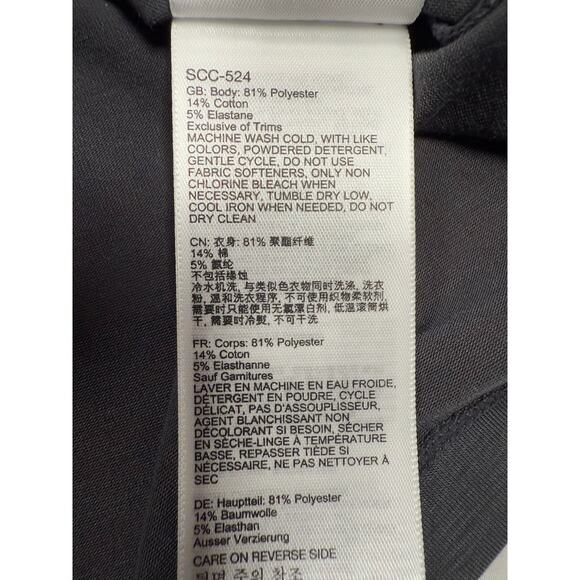 SCC-524
GB: Body: 81% Polyester
14% Cotton
5% Elastane
Exclusive of Trims
MACHINE WASH COLD, WITH LIKE
COLORS, POWDERED DETERGENT,
GENTLE CYCLE, DO NOT USE
FABRIC SOFTENERS, ONLY NON
CHLORINE BLEACH WHEN
NECESSARY, TUMBLE DRY LOW,
COOL IRON WHEN NEEDED, DO NOT
DRY CLEAN
CN: 衣身: 81% 聚酯纤维
14% 棉
5% 氨纶
不包括缘蚀
冷水机洗, 与类似色衣物同时洗涤, 洗衣
粉, 温和洗衣程序, 不可使用织物柔软剂,
需要时只能使用无氯漂白剂, 低温滚筒烘
干, 需要时冷熨, 不可干洗
FR: Corps: 81% Polyester
14% Coton
5% Elasthanne
Sauf Garnitures
LAVER EN MACHINE EN EAU FROIDE,
DÉTERGENT EN POUDRE, CYCLE
DÉLICAT, PAS D'ASSOUPLISSEUR,
AGENT BLANCHISSANT NON
DÉCOLORANT SI BESOIN, SÉCHER
EN SÈCHE-LINGE À TEMPÉRATURE
BASSE, REPASSER TIÈDE SI
NÉCESSAIRE, NE PAS NETTOYER À
SEC
DE: Hauptteil: 81% Polyester
14% Baumwolle
5% Elasthan
Ausser Verzierung
CARE ON REVERSE SIDE
뒷면 주의 참조